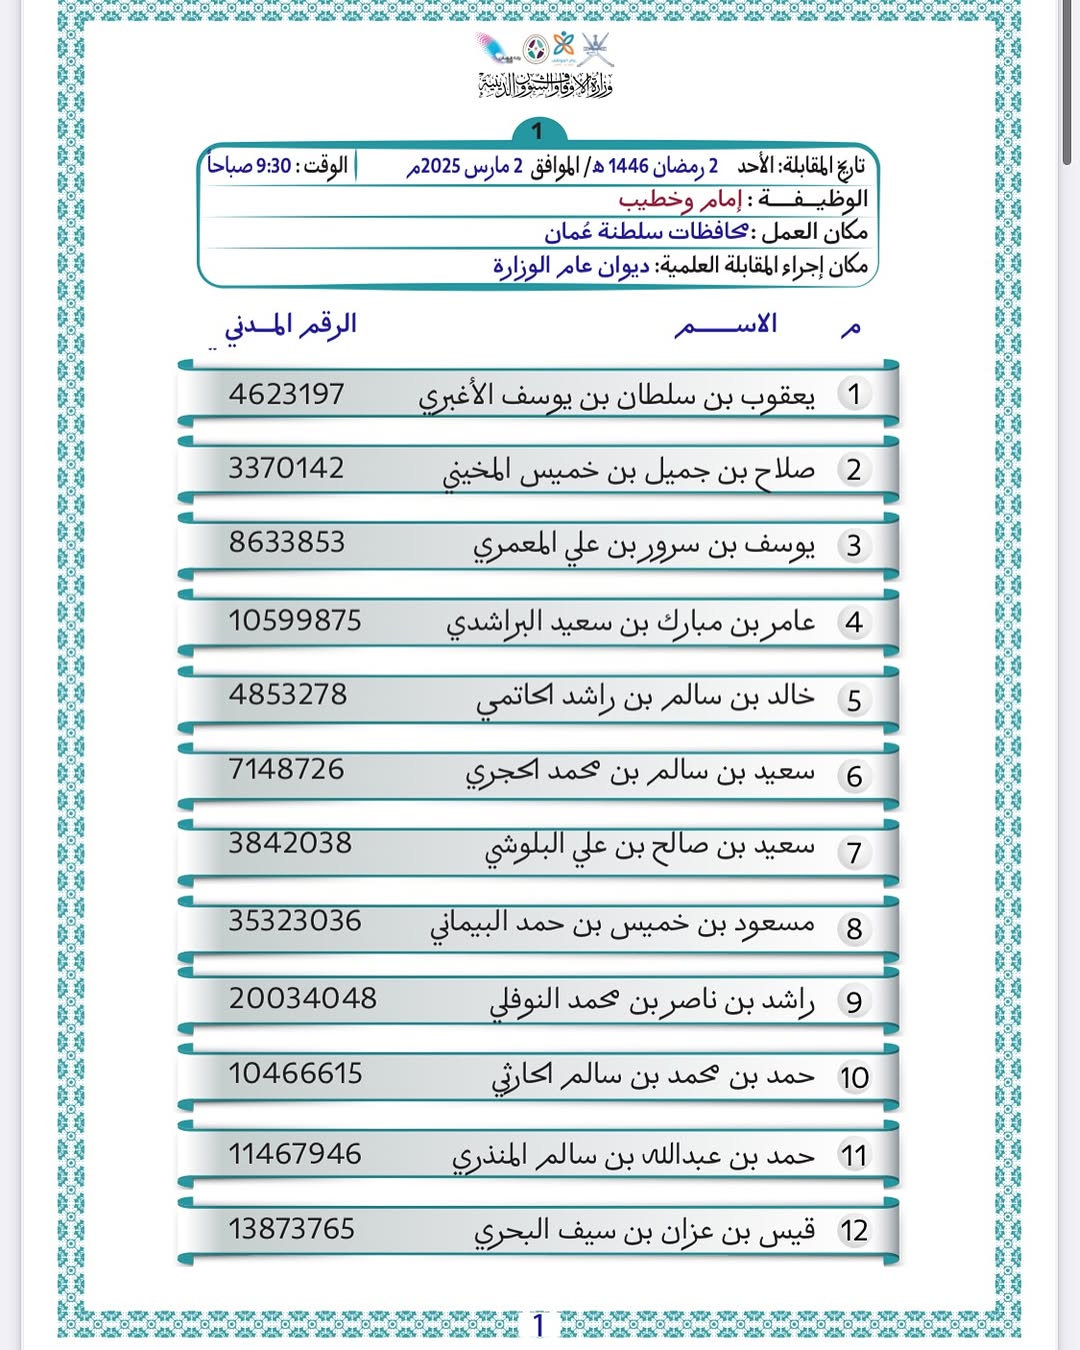 وزارة الأوقاف والشؤون الدينية
1
تاريخ المقابلة: الأحد 2 رمضان 1446 ه/ الموافق 2 مارس 2025م | الوقت : 9:30 صباحاً
الوظيـفـــة : إمام وخطيب
مكان العمل : محافظات سلطنة عُمان
مكان إجراء المقابلة العلمية: ديوان عام الوزارة
م الاســـــم الرقم المـدني
1 يعقوب بن سلطان بن يوسف الأغبري 4623197
2 صلاح بن جميل بن خميس المخيني 3370142
3 يوسف بن سرور بن علي المعمري 8633853
4 عامر بن مبارك بن سعيد البراشدي 10599875
5 خالد بن سالم بن راشد الحاتمي 4853278
6 سعيد بن سالم بن محمد الحجري 7148726
7 سعيد بن صالح بن علي البلوشي 3842038
8 مسعود بن خميس بن حمد البيماني 35323036
9 راشد بن ناصر بن محمد النوفلي 20034048
10 حمد بن محمد بن سالم الحارثي 10466615
11 حمد بن عبدالله بن سالم المنذري 11467946
12 قيس بن عزان بن سيف البحري 13873765
1